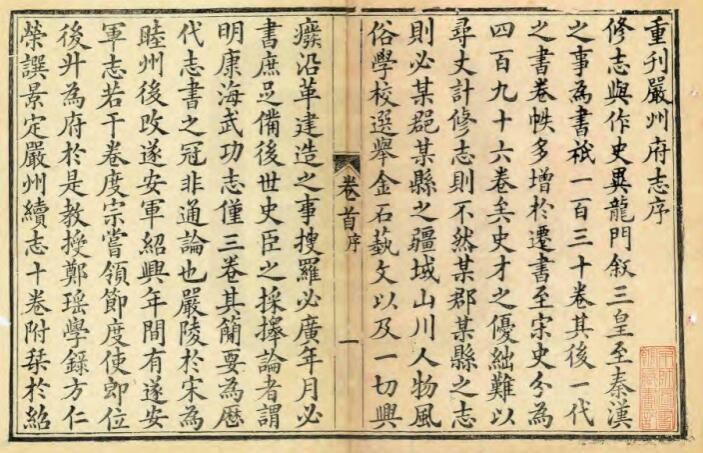 重刊嚴州府志序
修志與作史異龍門敘三皇至秦漢
之事為書祇一百三十卷其後一代
之書卷帙多增於遷書至宋史分為
四百九十六卷矣史才之優絀難以
尋丈計修志則不然某郡某縣之志
則必某郡某縣之疆域山川人物風
俗學校選舉金石藝文以及一切興
卷首
序
一
癈沿革建造之事搜羅必廣年月必
書庶足備後世史臣之採擇論者謂
明康海武功志僅三卷其簡要為歴
代志書之冠非通論也嚴陵於宋為
睦州後改遂安軍紹興年間有遂安
軍志若干卷度宗嘗領節度使即位
後升為府於是教授鄭瑤學錄方仁
榮譔景定嚴州續志十卷附琹於紹